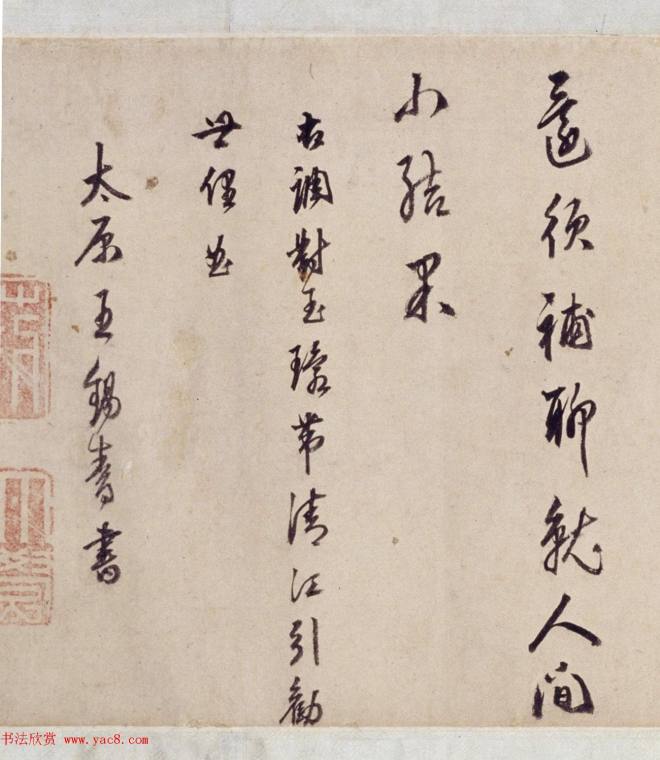 還須補聊就人間
小結果
右調對玉環帶清江引勸
世
太原王錫爵書
书法欣赏 www.yac8.com